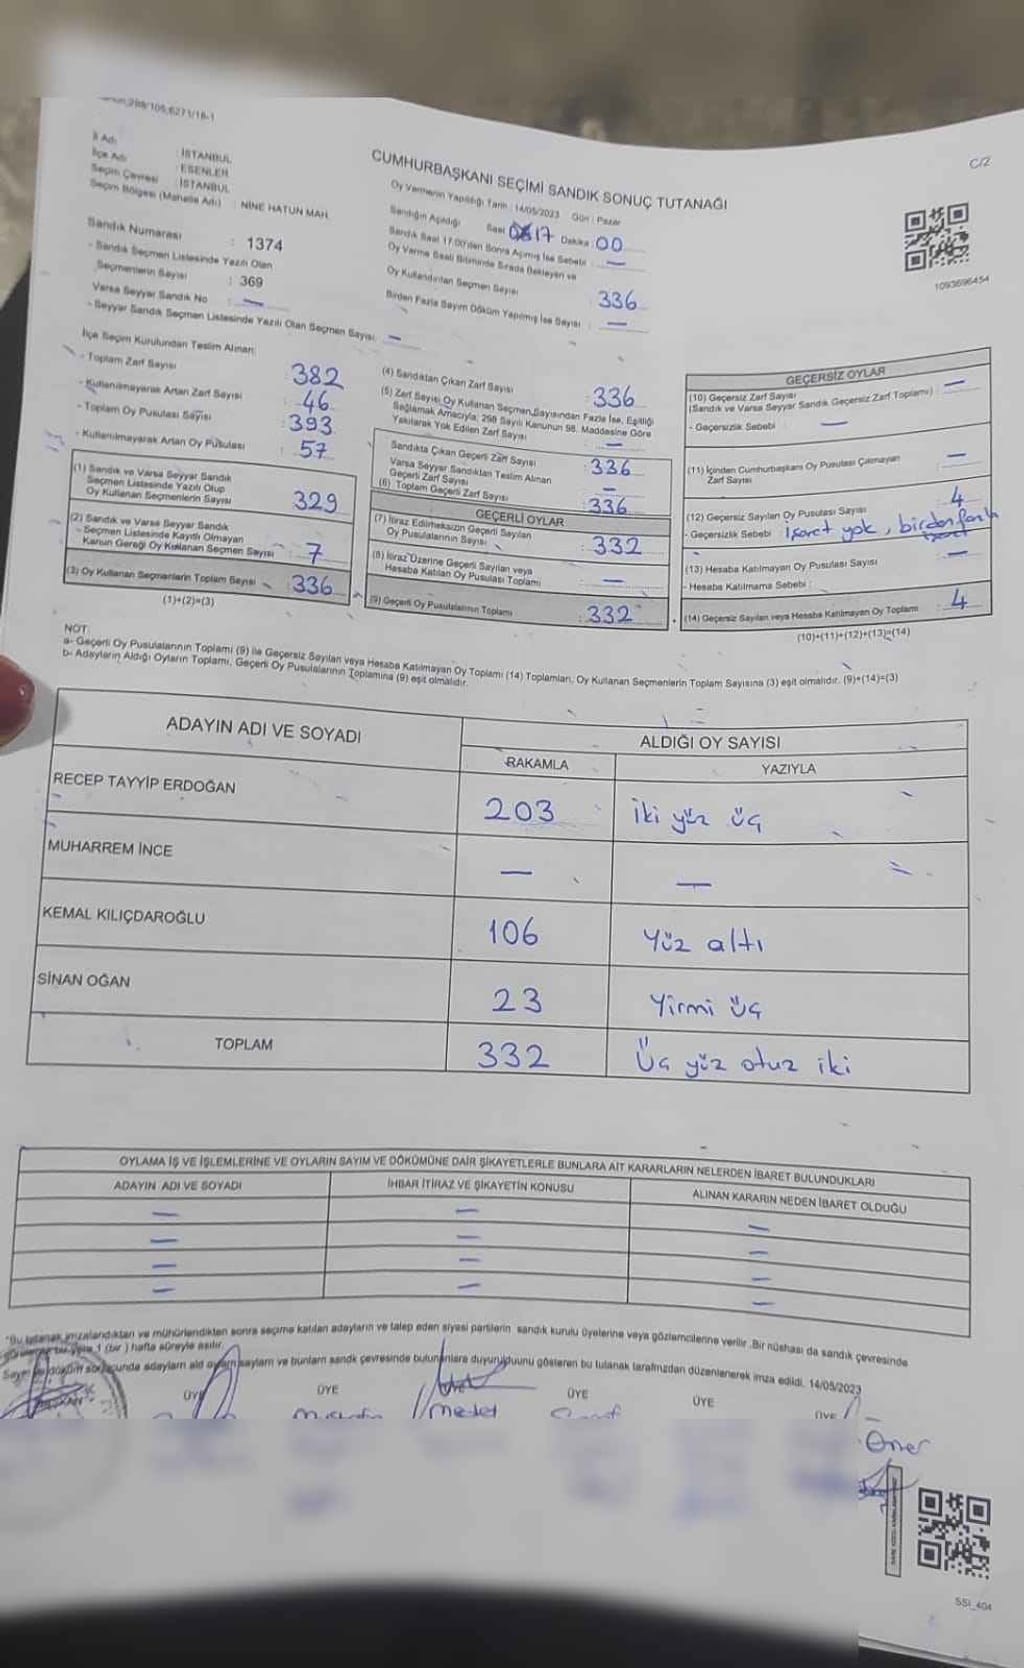 C/2
İl Adı : İSTANBUL
İlçe Adı : ESENLER
Seçim Çevresi : İSTANBUL
Seçim Bölgesi (Mahalle Adı) : NİNE HATUN MAH.
Sandık Numarası : 1374
- Sandık Seçmen Listesinde Yazılı Olan
Seçmenlerin Sayısı : 369
Varsa Seyyar Sandık No : —
- Seyyar Sandık Seçmen Listesinde Yazılı Olan Seçmen Sayısı : —
CUMHURBAŞKANI SEÇİMİ SANDIK SONUÇ TUTANAĞI
Oy Vermenin Yapıldığı Tarih : 14/05/2023 Gün : Pazar
Sandığın Açıldığı Saat 17 Dakika : 00
Sandık Saat 17.00'den Sonra Açılmış İse Sebebi : —
Oy Verme Saati Bitiminde Sırada Bekleyen ve
Oy Kullandırılan Seçmen Sayısı : 336
Birden Fazla Sayım Döküm Yapılmış İse Sayısı : —
1093696454
İlçe Seçim Kurulundan Teslim Alınan:
- Toplam Zarf Sayısı : 382
- Kullanılmayarak Artan Zarf Sayısı : 46
- Toplam Oy Pusulası Sayısı : 393
- Kullanılmayarak Artan Oy Pusulası : 57
(1) Sandık ve Varsa Seyyar Sandık
Seçmen Listesinde Yazılı Olup
Oy Kullanan Seçmenlerin Sayısı 329
(2) Sandık ve Varsa Seyyar Sandık
Seçmen Listesinde Kayıtlı Olmayan
Kanun Gereği Oy Kullanan Seçmen Sayısı : 7
(3) Oy Kullanan Seçmenlerin Toplam Sayısı : 336
(1)+(2)=(3)
(4) Sandıktan Çıkan Zarf Sayısı : 336
(5) Zarf Sayısı Oy Kullanan Seçmen Sayısından Fazla İse, Eşitliği
Sağlamak Amacıyla; 298 Sayılı Kanunun 98. Maddesine Göre
Yakılarak Yok Edilen Zarf Sayısı : —
Sandıkta Çıkan Geçerli Zarf Sayısı : 336
Varsa Seyyar Sandıktan Teslim Alınan
Geçerli Zarf Sayısı : —
(6) Toplam Geçerli Zarf Sayısı : 336
GEÇERLİ OYLAR
(7) İtiraz Edilmeksizin Geçerli Sayılan
Oy Pusulalarının Sayısı : 332
(8) İtiraz Üzerine Geçerli Sayılan veya
Hesaba Katılan Oy Pusulası Toplamı : —
(9) Geçerli Oy Pusulalarının Toplamı : 332
GEÇERSİZ OYLAR
(10) Geçersiz Zarf Sayısı
(Sandık ve Varsa Seyyar Sandık Geçersiz Zarf Toplamı) : —
- Geçersizlik Sebebi : —
(11) İçinden Cumhurbaşkanı Oy Pusulası Çıkmayan
Zarf Sayısı : —
(12) Geçersiz Sayılan Oy Pusulası Sayısı : 4
- Geçersizlik Sebebi : İşaret yok, birden fazla işaret
(13) Hesaba Katılmayan Oy Pusulası Sayısı : —
- Hesaba Katılmama Sebebi :
(14) Geçersiz Sayılan veya Hesaba Katılmayan Oy Toplamı : 4
(10)+(11)+(12)+(13)=(14)
NOT:
a- Geçerli Oy Pusulalarının Toplamı (9) ile Geçersiz Sayılan veya Hesaba Katılmayan Oy Toplamı (14) Toplamları, Oy Kullanan Seçmenlerin Toplam Sayısına (3) eşit olmalıdır. (9)+(14)=(3)
b- Adayların Aldığı Oyların Toplamı, Geçerli Oy Pusulalarının Toplamına (9) eşit olmalıdır.
ADAYIN ADI VE SOYADI ALDIĞI OY SAYISI
RAKAMLA YAZIYLA
RECEP TAYYİP ERDOĞAN 203 İki yüz üç
MUHARREM İNCE — —
KEMAL KILIÇDAROĞLU 106 Yüz altı
SİNAN OĞAN 23 Yirmi üç
TOPLAM 332 Üç yüz otuz iki
OYLAMA İŞ VE İŞLEMLERİNE VE OYLARIN SAYIM VE DÖKÜMÜNE DAİR ŞİKAYETLERLE BUNLARA AİT KARARLARIN NELERDEN İBARET BULUNDUKLARI
ADAYIN ADI VE SOYADI İHBAR İTİRAZ VE ŞİKAYETİN KONUSU ALINAN KARARIN NEDEN İBARET OLDUĞU
— — —
— — —
— — —
— — —
"Bu tutanak imzalandıktan ve mühürlendikten sonra seçime katılan adayların ve talep eden siyasi partilerin sandık kurulu üyelerine veya gözlemcilerine verilir. Bir nüshası da sandık çevresinde
1 (bir) hafta süreyle asılır.
Sayım ve döküm sonucunda adayların aldığı oyların sayısını ve bunların sandık çevresinde bulunanlara duyurulduğunu gösteren bu tutanak tarafımızdan düzenlenerek imza edildi. 14/05/2023
BAŞKAN ÜYE ÜYE ÜYE ÜYE ÜYE ÜYE
Medet
Öner
SSI_404